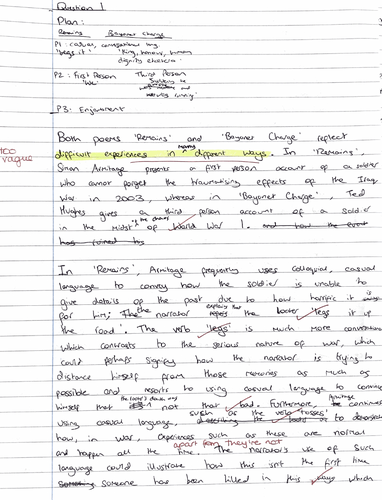 Question 1
Plan:
Remains Bayonet Charge
P1: casual, conversational lang.
'legs it' 'King, honour, human
dignity etcetera'
P2: First Person Third Person
'We' 'Suddenly he
running'
P3: Enjambment
Both poems 'Remains' and 'Bayonet Charge' reflect
too vague
difficult experiences in many different ways. In 'Remains',
Simon Armitage presents a first person account of a soldier
who cannot forget the traumatising effects of the Iraq
War in 2003, whereas in 'Bayonet Charge', Ted
Hughes gives a third person account of a soldier
in the midst of the World War 1. and how the event
has
In 'Remains', Armitage frequently uses colloquial, casual
language to convey how the soldier is unable to
give details of the past due to how horrific it is
for him; The narrator explains that the looter 'legs it up
the road'. The verb 'legs' is much more conversational
which contrasts to the serious nature of war, which
could perhaps signify how the narrator is trying to
distance himself from those memories as much as
possible and resorts to using casual language to convince
himself that the looter's death was not that bad. Furthermore, Armitage continues
using casual language, such as the verb 'tosses' to demonstrate
how, in war, experiences such as these are normal
and happen all the time. apart from they're not The narrator's use of such
language could illustrate how this isn't the first time
someone has been killed in this way which